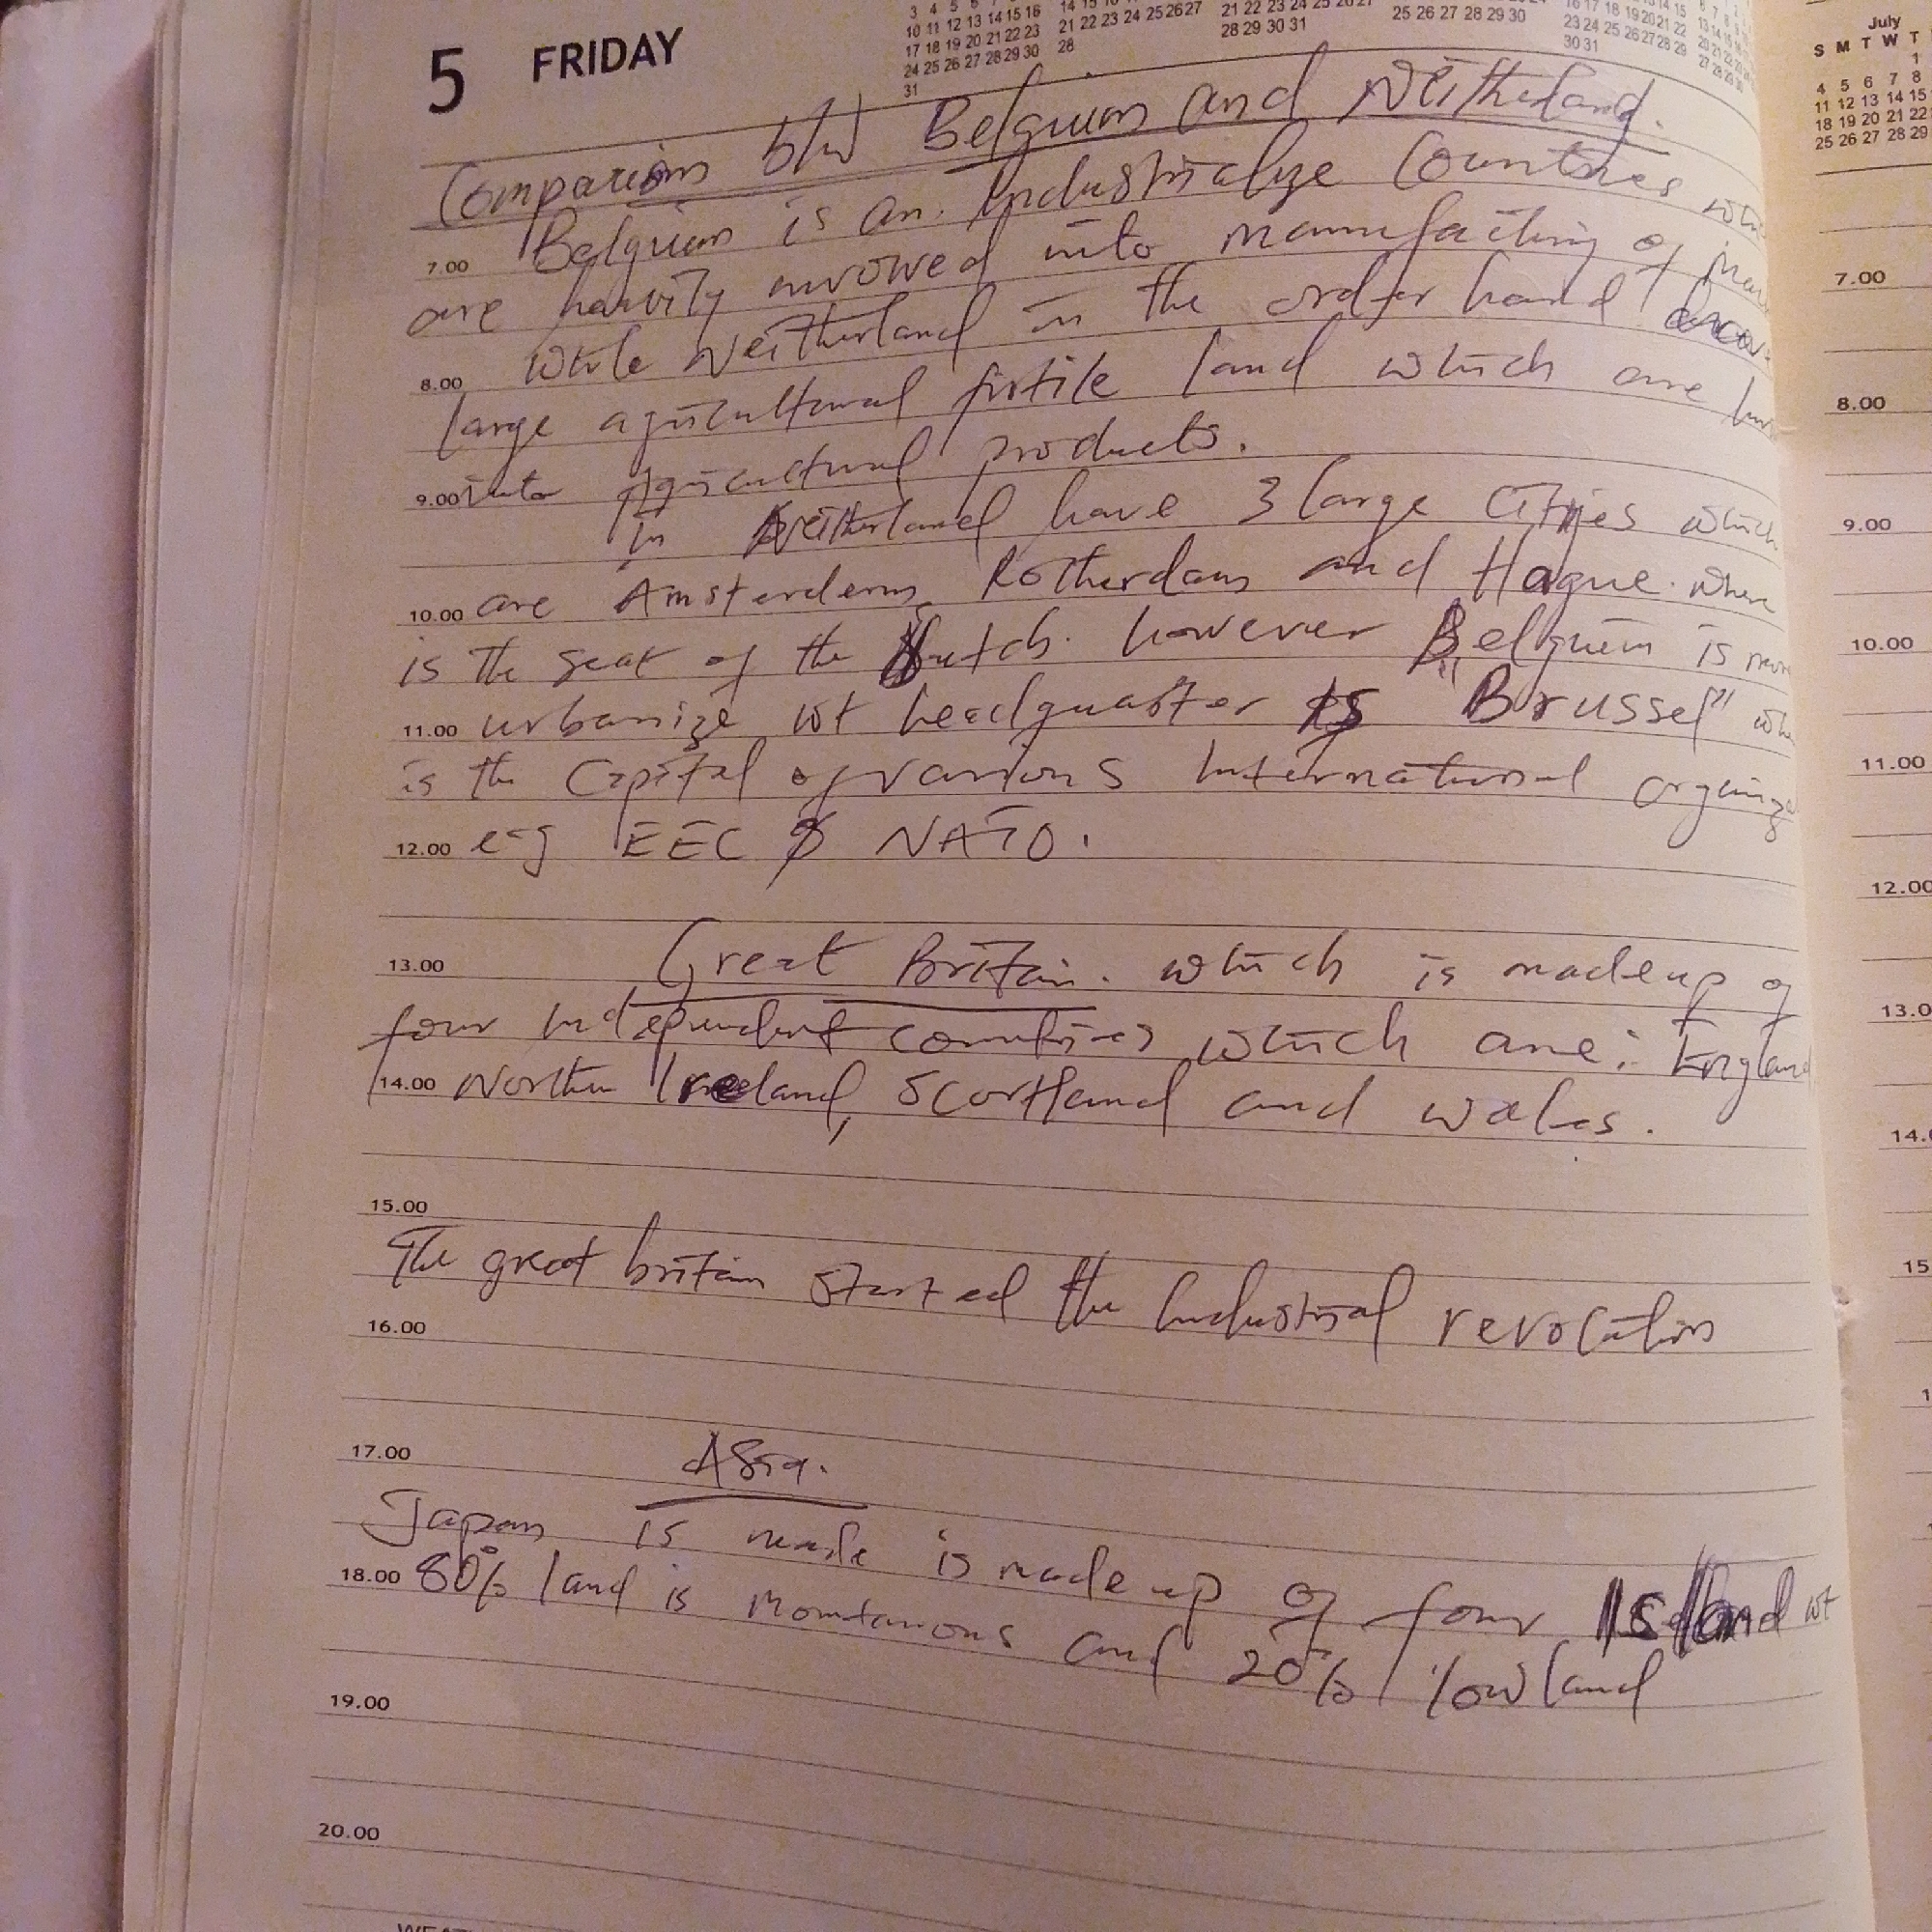 5 FRIDAY
3 4 5 6 7
10 11 12 13 14 15 16
17 18 19 20 21 22 23
24 25 26 27 28 29 30
31
21 22 23 24 25 26 27
28
21 22 23 24 25 26 27
28 29 30 31
25 26 27 28 29 30
16 17 18 19 20 21 22
23 24 25 26 27 28 29
30 31
Comparison b/w Belgium and Neitherland.
Belgium is an Industrialize Countries
7.00
are havily invowed into manufacturing of
8.00 While Neitherland in the order hand
large agricultural firtile land which are
9.00 into Agricultural products.
In Neitherland have 3 large Cities which
10.00 are Amsterdem, Rotherdam and Hague. where
is the seat of the Dutch. however Belgium is more
11.00 urbanize wt headquarter is "Brussel"
is the Capital of various International
12.00 e-g EEC & NATO.
13.00 Great Britain. which is made up of
four independent countries which are: England
14.00 Northern Ireland, Scortland and wales.
15.00
The great britain started the Industrial revolution
16.00
17.00 Asia.
Japan is made is made up of four Island wt
18.00 80% land is Mountanous and 20% lowland
19.00
20.00
July
S M T W T
1
4 5 6 7 8
11 12 13 14 15
18 19 20 21 22
25 26 27 28 29
7.00
8.00
9.00
10.00
11.00
12.00
13.0
14.
15